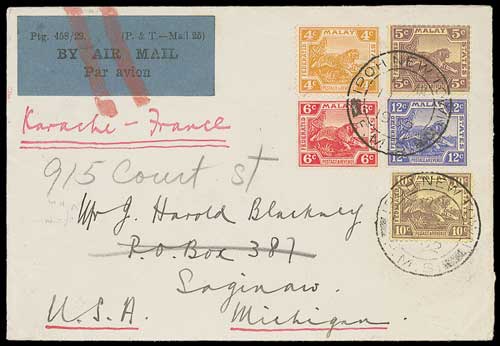 Ptg. 458/29. (P. & T.—Mail 25)
BY AIR MAIL
Par avion
4c MALAY 5c
FEDERATED STATES
POSTAGE & REVENUE
6c 12c
FEDERATED MALAY STATES
POSTAGE & REVENUE
6c 12c
MALAY
10c POSTAGE & REVENUE 10c
IPOH NEW
F.M.S.
IPOH NEW
Karachi - France
915 Court St
Mr J. Harold Blackney
P.O. Box 387
Saginaw
U.S.A. Michigan.